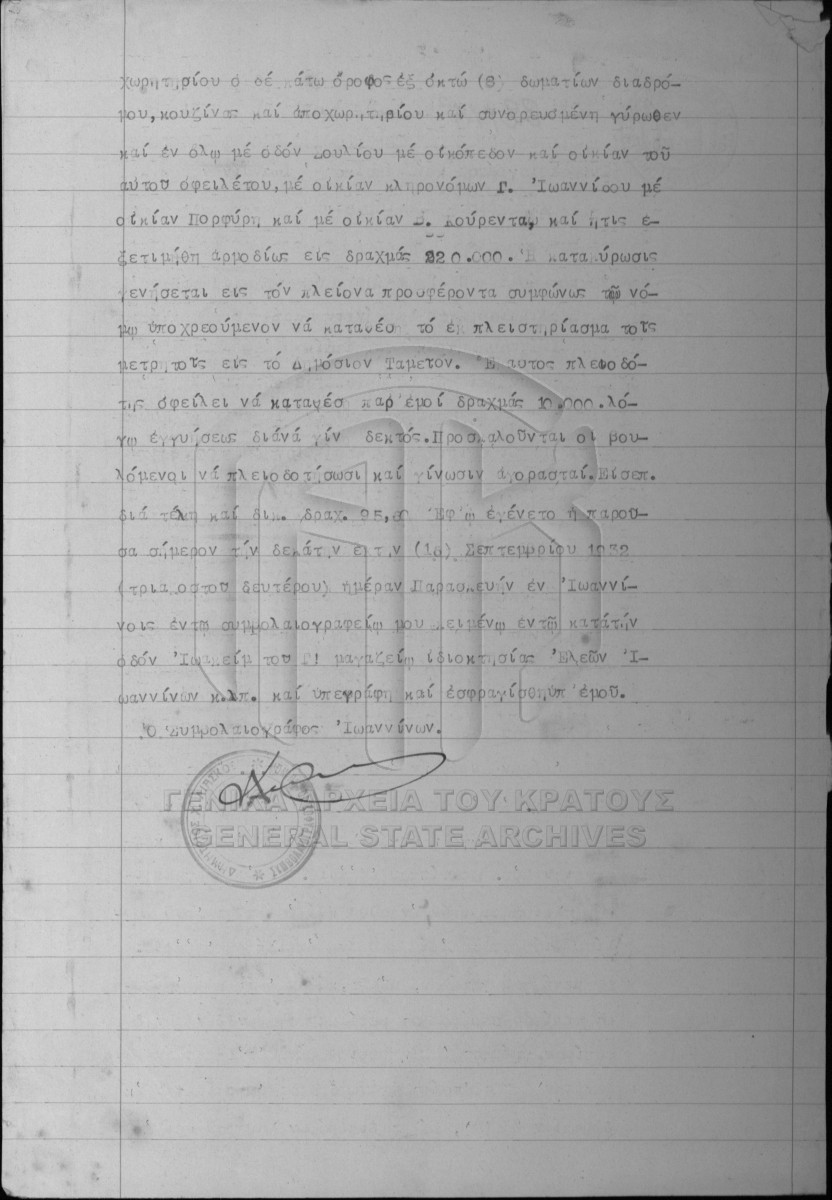 χωρητηρίου ὁ δέ κάτω ὄροφος ἐξ ὀκτώ (8) δωματίων διαδρό-
μου, κουζίνας καί ἀποχωρητηρίου καί συνορευομένη γύρωθεν
καί ἐν ὅλῳ μέ ὁδόν Σουλίου μέ οἰκόπεδον καί οἰκίαν τοῦ
αὐτοῦ ὀφειλέτου, μέ οἰκίαν κληρονόμων Γ. Ἰωαννίδου μέ
οἰκίαν Πορφύρη καί μέ οἰκίαν Κούρεντα, καί ἥτις ἐ-
ξετιμήθη ἁρμοδίως εἰς δραχμάς 220.000. Ἡ κατακύρωσις
γενήσεται εἰς τόν πλείονα προσφέροντα συμφώνως τῷ νό-
μῳ ὑποχρεούμενον νά καταθέσῃ τό ἐκπλειστηρίασμα τοῖς
μετρητοῖς εἰς τό Δημόσιον Ταμεῖον. Ἕκαστος πλειοδό-
της ὀφείλει νά καταθέσῃ παρ'ἐμοί δραχμάς 10.000. λό-
γῳ ἐγγυήσεως διά νά γίνῃ δεκτός. Προσκαλοῦνται οἱ βου-
λόμενοι νά πλειοδοτήσωσι καί γίνωσιν ἀγορασταί. Εἰσεπ.
διά τέλη καί δικ. δραχ. Ἐφ'ᾧ ἐγένετο ἡ παροῦ-
σα σήμερον τήν δεκάτην ἕκτην (16) Σεπτεμβρίου 1932
(τριακοστοῦ δευτέρου) ἡμέραν Παρασκευήν ἐν Ἰωαννί-
νοις ἐντῷ συμβολαιογραφείῳ μου κειμένῳ ἐντῷ κατάτήν
ὁδόν Ἰωακείμ τοῦ Γ! μαγαζείῳ ἰδιοκτησίας Ἐλεῶν Ἰ-
ωαννίνων κ.λ.π. καί ὑπεγράφη καί ἐσφραγίσθη ὑπ'ἐμοῦ.
Ὁ Συμβολαιογράφος Ἰωαννίνων.
ΓΕΝΙΚΑ ΑΡΧΕΙΑ ΤΟΥ ΚΡΑΤΟΥΣ
GENERAL STATE ARCHIVES